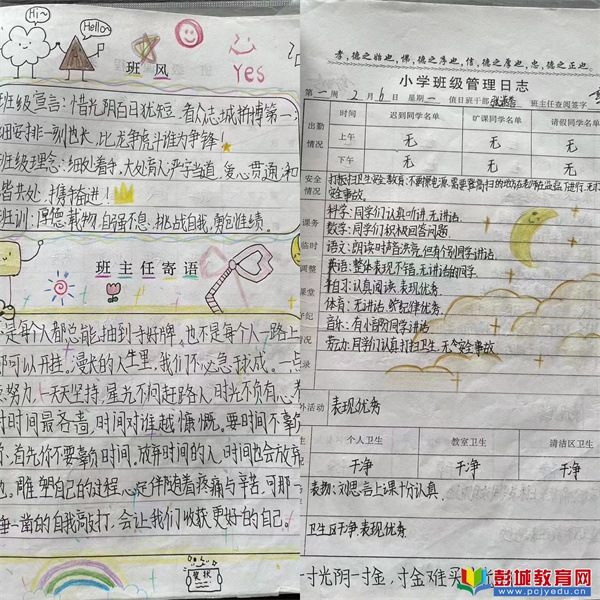 Hi~
Hello~
班风
Yes
班级宣言:惜光阴百日犹短,看众志成城拼搏第一,
细安排一刻也长,比龙争虎斗谁为争锋!
班级理念:细处着手,大处育人,严字当道,爱心贯通,和
谐共处,携手奋进!
班训:厚德载物,自强不息,挑战自我,勇创佳绩。
班主任寄语
不是每个人都总能抽到手好牌,也不是每个人一路上
都可以开挂。漫长的人生里,我们不必急于求成。一点
努力,一天天坚持,星光不问赶路人,时光不负有心
时间最吝啬,时间对谁越慷慨。要时间不辜负
首先你不要辜负时间。放弃时间的人,时间也会放弃
他。雕塑自己的过程,必定伴随着疼痛与辛苦,可那一
锤一凿的自我敲打,会让我们收获更好的自己。
奖状
孝,德之始也,悌,德之序也,信,德之厚也,忠,德之正也。
小学班级管理日志
第一周 2月6日 星期一 值日班干部 班主任查阅签字
出勤情况 时间 迟到同学名单 旷课同学名单 请假同学名单
上午 无 无 无
下午 无 无 无
安全情况 打扫卫生安全教育:不要摸电源,需要登高扫的地方在老师在监督下进行,无打
安全事故。
课务临时调整
课堂
纪
录
科学:同学们认真听讲,无讲话。
数学:同学们积极回答问题
语文:朗读时声音洪亮,但有个别同学讲话。
英语:整体表现不错,无讲话的同学。
自习:认真阅读,表现优秀。
体育:无讲话,路纪律优秀。
音乐:有小部分同学讲话
劳动:同学们认真打扫卫生,无安全事故。
外活动 表现优秀
个人卫生 教室卫生 清洁区卫生
干净 干净 干净
表扬:刘思言上课十分认真。
卫生区干净,表现优秀。
一寸光阴一寸金,寸金难买
彭城教育网
www.pcjyedu.cn